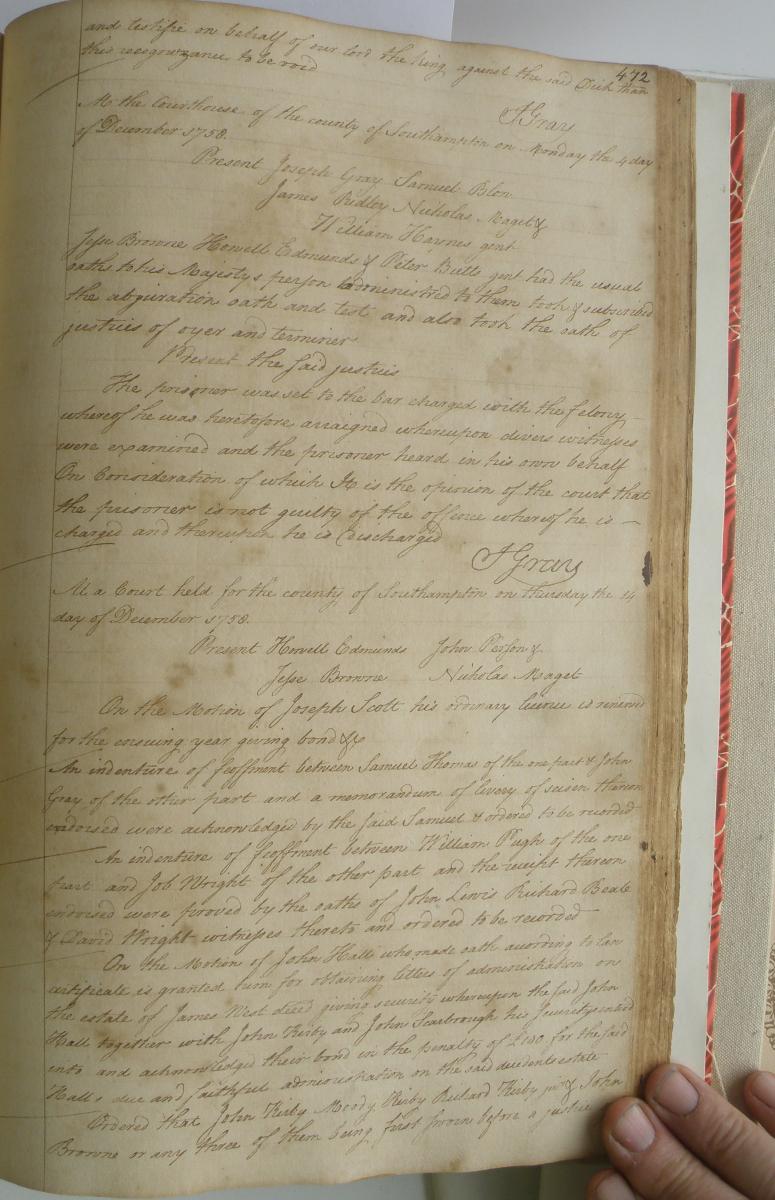 472
and testifie on behalf of our lord the King against the said Dick than
this recognizance to be void
J Gray
At the Courthouse of the county of Southampton on Monday the 4 day
of December 1758.
Present Joseph Gray Samuel Blow
James Ridley Nicholas Maget &
William Haynes gent
Jesse Browne Howell Edmunds & Peter Butts gent had the usual
oaths to his Majestys person administred to them took & subscribed
the abjuration oath and test and also took the oath of
justices of oyer and terminer
Present the said justices
The prisoner was set to the bar charged with the felony
whereof he was heretofore arraigned whereupon divers witnesses
were examined and the prisoner heard in his own behalf
On Consideration of which It is the opinion of the court that
the prisoner is not guilty of the offence whereof he is
charged and thereupon he is discharged
J Gray
At a Court held for the county of Southampton on thursday the 14
day of December 1758.
Present Howell Edmunds John Person &
Jesse Browne Nicholas Maget
On the Motion of Joseph Scott his ordinary licence is renewed
for the ensuing year giving bond &c
An indenture of feoffment between Samuel Thomas of the one part & John
Gray of the other part and a memorandum of livery of seisen thereon
endorsed were acknowledged by the said Samuel & ordered to be recorded
An indenture of feoffment between William Pugh of the one
part and Job Wright of the other part and the receipt thereon
endorsed were proved by the oaths of John Lewis Richard Beale
& David Wright witnesses thereto and ordered to be recorded
On the Motion of John Hall who made oath according to law
certificate is granted him for obtaining letters of administration on
the estate of James West decd giving security whereupon the said John
Hall together with John Kirby and John Scarbrough his security entred
into and acknowledged their bond in the penalty of £100 for the said
Halls due and faithful administration on the said decedents estate
Ordered that John Kirby Moody Kirby Richard Kirby junr & John
Browne or any three of them being first sworn before a justice